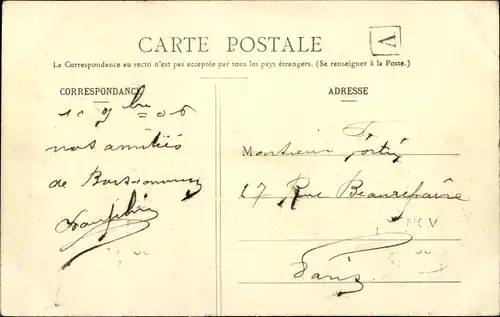 A
CARTE POSTALE
La Correspondance au recto n'est pas acceptée par tous les pays étrangers. (Se renseigner à la Poste.)
CORRESPONDANCE
nos amitiés
de
ADRESSE
Monsieur
27 Rue Beaurepaire
Paris